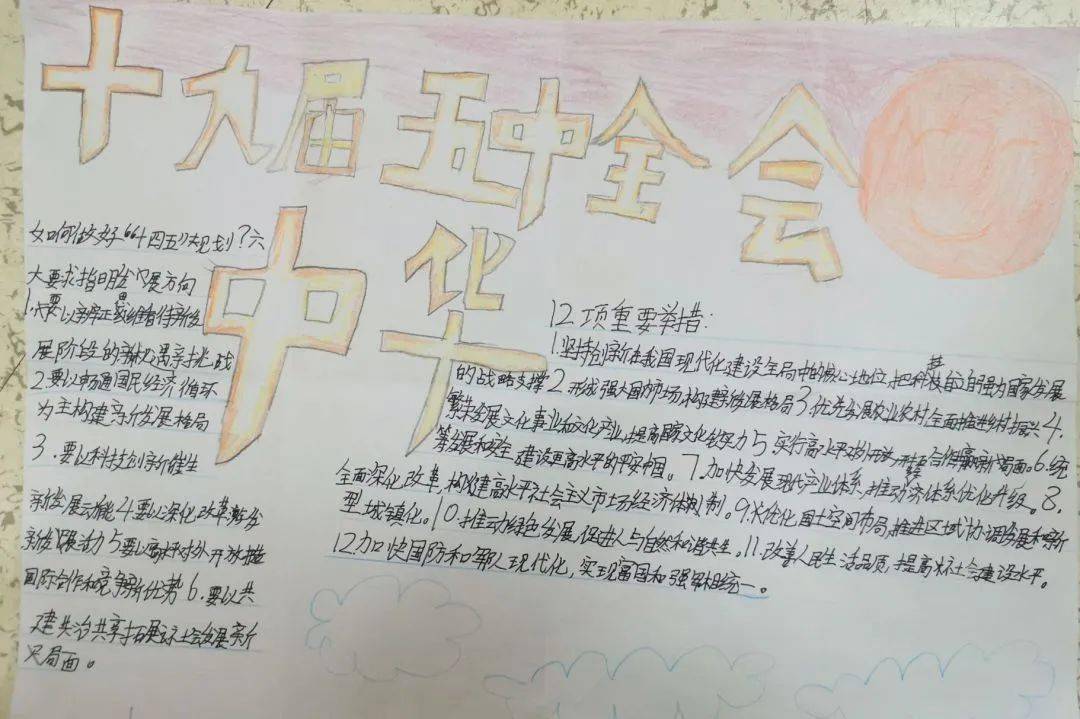 十九届五中全会
中华
如何做好“十四五”规划?六
大要求指明发展方向
1.要以辩证思维看待新发
展阶段的新机遇新挑战
2.要以畅通国民经济循环
为主构建新发展格局
3.要以科技创新催生
新发展动能4.要以深化改革激发
新发展活力5要以高水平对外开放
国际合作和竞争新优势6.要以共
建共治共享拓展社会发展新
局面。
12项重要举措:
1.坚持创新在我国现代化建设全局中的核心地位,把科技自立自强为国家发展
的战略支撑2.形成强大国内市场,构建新发展格局3.优先发展农业农村全面推进乡村振兴4.
繁荣发展文化事业和文化产业,提高国家文化软实力5.实行高水平对外开放,开拓合作共赢新局面。6.统
筹发展和安全,建设更高水平的平安中国。7.加快发展现代产业体系,推动经济体系优化升级。8.
全面深化改革,构建高水平社会主义市场经济体制。9.优化国土空间布局,推进区域协调发展和新
型城镇化。10.推动绿色发展,促进人与自然和谐共生。11.改善人民生活品质,提高社会建设水平。
12加快国防和军队现代化,实现富国和强军相统一。